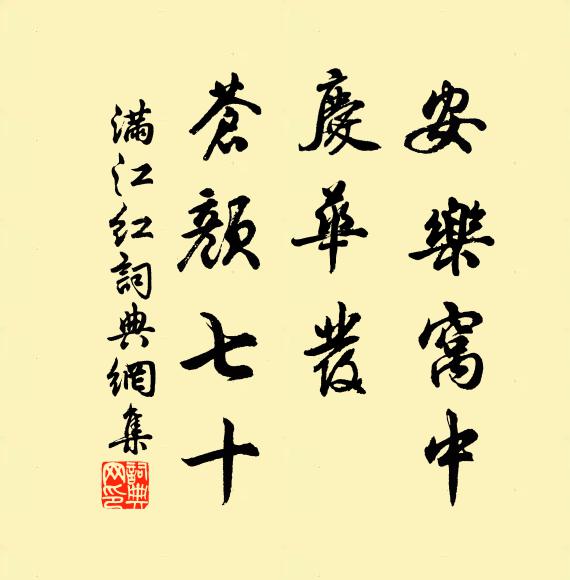 安樂窩中
慶華發
蒼顏七十
滿江紅詞典網集
詞典
网印